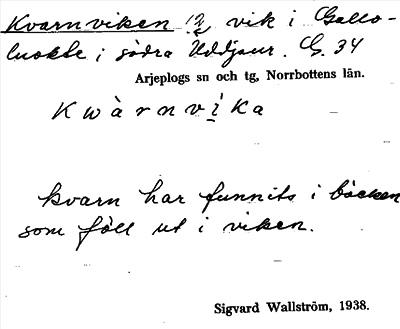 Kvarnviken 12 vik i Gallo-
luokte i södra Uddjaur. G. 34
Arjeplogs sn och tg, Norrbottens län.
Kwàrnvika
kvarn har funnits i bäcken
som föll ut i viken.
Sigvard Wallström, 1938.